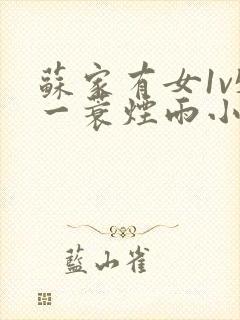 蘇家有女1v
一蓑煙雨小
藍山雀